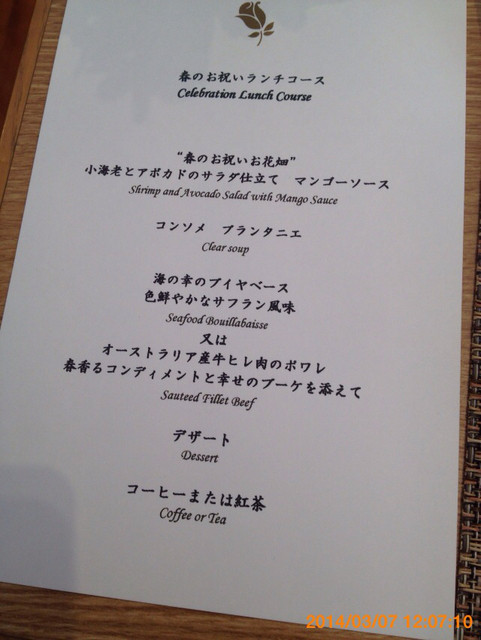 春のお祝いランチコース
Celebration Lunch Course
“春のお祝いお花畑”
小海老とアボカドのサラダ仕立て　マンゴーソース
Shrimp and Avocado Salad with Mango Sauce
コンソメ　プランタニエ
Clear soup
海の幸のブイヤベース
色鮮やかなサフラン風味
Seafood Bouillabaisse
又は
オーストラリア産牛ヒレ肉のポワレ
春香るコンディメントと幸せのブーケを添えて
Sauteed Fillet Beef
デザート
Dessert
コーヒーまたは紅茶
Coffee or Tea
2014/03/07 12:07:10